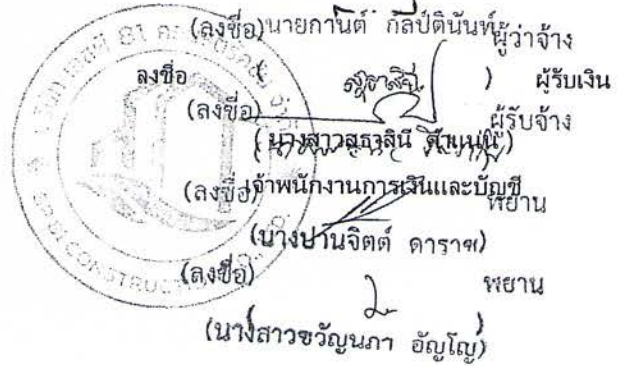 (ลงชื่อ) นายกานต์ กัลป์ตินันท์ ผู้ว่าจ้าง
ลงชื่อ ( สุธาสินี ) ผู้รับเงิน
(ลงชื่อ) ผู้รับจ้าง
(นางสาวสุธาสินี)
(ลงชื่อ) เจ้าพนักงานการเงินและบัญชี พยาน
(นางปานจิตต์ ดาราช)
(ลงชื่อ) พยาน
(นางสาวขวัญนภา อัญโญ)
81
CONSTRUCT